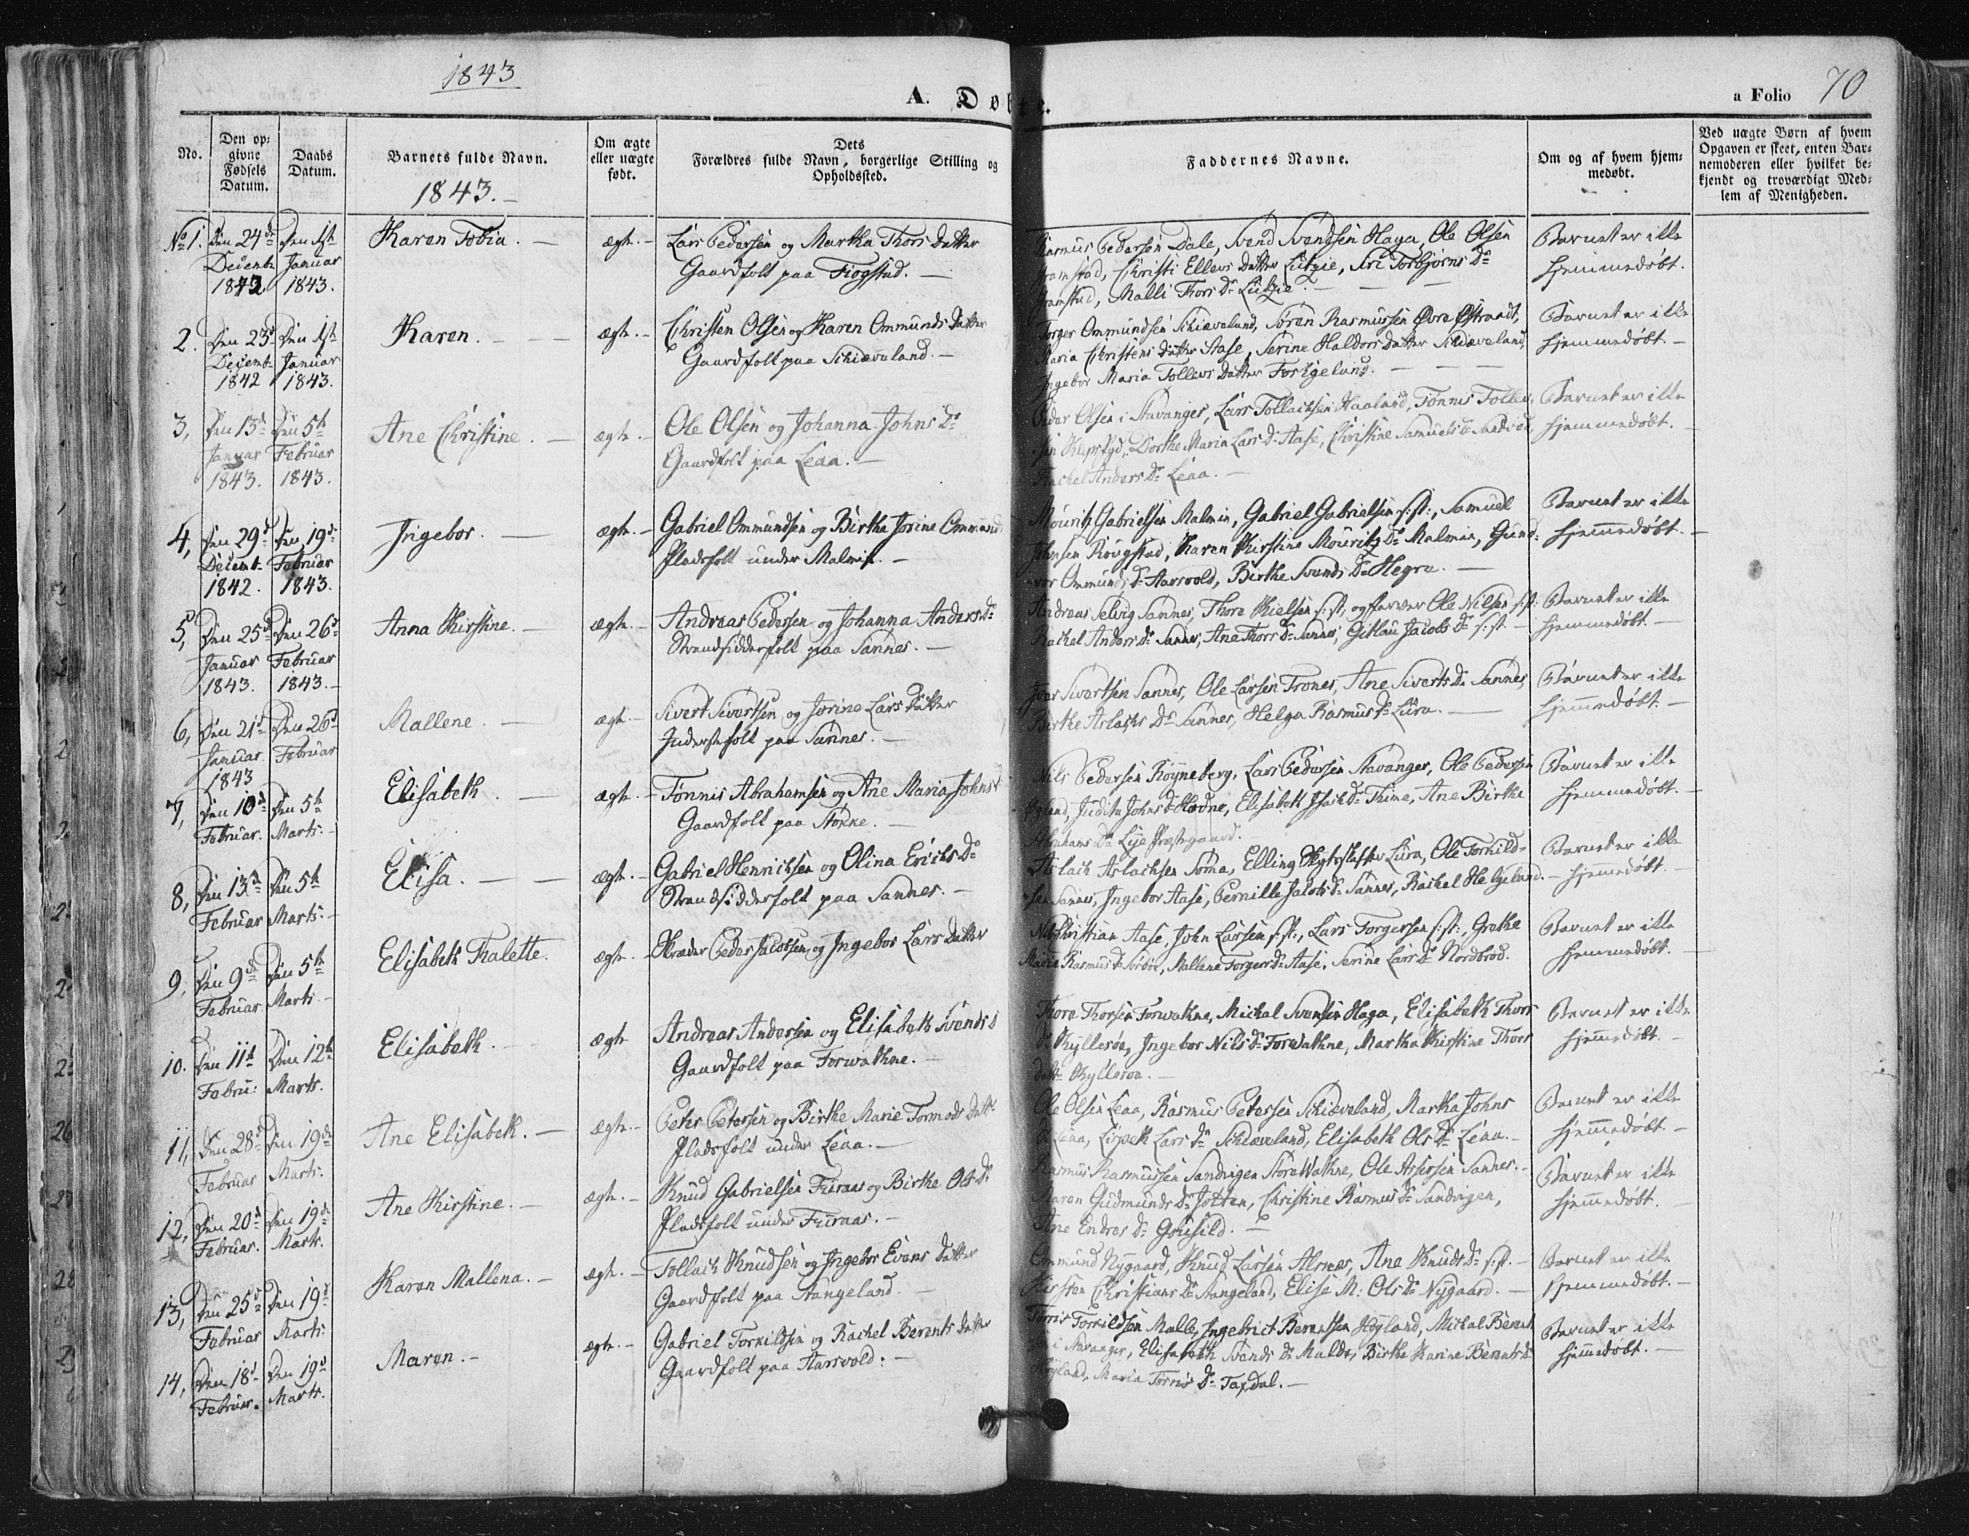 1843
A. Døbte.
a Folio 70
No.
Den opgivne Fødsels Datum.
Daabs Datum.
Barnets fulde Navn.
1843.
Om ægte eller uægte født.
Dets Forældres fulde Navn, borgerlige Stilling og Opholdssted.
Faddernes Navne.
Om og af hvem hjemmedøbt.
Ved uægte Børn af hvem Opgaven er skeet, enten Barnemoderen eller hvilket bekjendt og troværdigt Medlem af Menigheden.
No 1. Den 24de Den 1ste Karen Tobia. ægte. Lars Pedersen og Martha Thors Datter Rasmus Pedersen Dale, Svend Svendsen Haga, Ole Olsen Barnet er ikke
Decemb. Januar Gaardfolk paa Fiogstad. Christi Ellevs Datter Lutzie, Siri Torbjørns Dr hjemmedøbt.
1842 1843. Malli Thors Dr Lutzie.
2. Den 23d Den 1ste Karen. ægte. Christen Olsen og Karen Ommunds Datter Torger Ommundsen Schieveland, Søren Rasmussen Øvre Østraadt, Barnet er ikke
Decemb. Januar Gaardfolk paa Schieveland. Maria Christens Datter Aase, Serine Haldors Datter Schieveland, hjemmedøbt.
1842 1843. Ingebor Maria Tollevs Datter Foskjeland.
3, Den 13d Den 5te Ane Christine. ægte. Ole Olsen og Johanna Johns Dr Peder Olsen i Stavanger, Lars Tollachsen Haaland, Tønnes Tollev- Barnet er ikke
Januar Februar Gaardfolk paa Leaa. Dorthe Maria Lars Dr Aase, Christine Samuels Dr hjemmedøbt.
1843. 1843. Rachel Anders Dr Leaa.
4, Den 29d Den 19d Ingebor. ægte. Gabriel Ommundsen og Birtha Jorine Ommund Mouritz Gabrielsen Malmin, Gabriel Gabrielsen s:st:, Samuel Barnet er ikke
Decemb. Februar Pladsfolk under Malmin. Johnsen Røvgstad, Karen Kirstine Mouritz Dr Malmin, Gund- hjemmedøbt.
1842. 1843. vor Ommunds Dr Aarsvold, Birthe Svends Dr Hegra.
5, Den 25d Den 26d Anna Kirstine. ægte. Andreas Pedersen og Johanna Anders Dr Andreas Selvig Sannes, Thore Nielsen s:st, og farver Ole Nilsen s:st: Barnet er ikke
Januar Februar Strandsidderfolk paa Sannes. Rachel Anders Dr Sannes, Ane Thors Dr Sannes, Gitlau Jacobs Dr s:st hjemmedøbt.
1843. 1843.
6, Den 21d Den 26d Mallene. ægte. Sivert Sivertsen og Jorine Lars Datter Iver Sivertsen Sannes, Ole Larsen Trones, Ane Siverts Dr Sannes, Barnet er ikke
Januar Februar Inderstefolk paa Sannes. Birthe Aslachs Dr Sannes, Helga Rasmus Dr Lura. hjemmedøbt.
1843
7, Den 10d Den 5te Elisabeth. ægte. Tønnis Abrahamsen og Ane Maria Johns Nils Pedersen Røyneberg, Lars Pedersen Stavanger, Ole Pedersen Barnet er ikke
Februar. Marts. Gaardfolk paa Stokke. Judita Johns Dr Hodne, Elisabeth Isach Dr Thime, Ane Birthe hjemmedøbt.
Abrahams Dr Lye Præstegaard.
8, Den 13d Den 5te Elisa. ægte. Gabriel Henrichsen og Olina Erichs Dr Aslach Aslachsen Soma, Elling Lura, Ole Torkild- Barnet er ikke
Februar Marts. Strandsidderfolk paa Sannes. sen Sannes, Ingebor Aase, Pernille Jacobs Dr Sannes, Rachel Helgeland. hjemmedøbt.
9, Den 9d Den 5te Elisabeth Tralette. ægte. Skræder Peder Jacobsen og Ingebor Lars Datter Christian Aase, John Larsen s:st:, Lars Torgersen s:st:, Grethe Barnet er ikke
Februar Marts Rasmus Dr Sørboe, Mallene Torgers Dr Aase, Serine Lars Dr Nordbrød. hjemmedøbt.
10. Den 11te Den 12te Elisabeth. ægte. Andreas Andersen og Elisabeth Svends Thore Thorsen Forwathne, Michal Svensen Haga, Elisabeth Thors Barnet er ikke
Febru: Marts. Gaardfolk paa Forwathne. Dr Kyllesøa, Ingebor Nils Dr Forwathne, Martha Kirstine Thors hjemmedøbt.
datter Kyllesøa.
11, Den 28d Den 19de Ane Elisabeth. ægte. Peter Petersen og Birthe Marie Tormods Datt. Ole Olsen Leaa, Rasmus Petersen Schieveland, Martha Johns Barnet er ikke
Februar Marts. Pladsfolk under Leaa. Dr Leaa, Lisbeth Lars Dr Schieveland, Elisabeth Ols Dr Leaa. hjemmedøbt.
12, Den 20d Den 19de Ane Kirstine. ægte. Knud Gabrielsen Furaas og Birthe Ols Dr Rasmus Rasmussen Sandvigen Store Wathne, Ole Sannes. Barnet er ikke
Februar. Marts. Pladsfolk under Furaas. Maren Gudmunds Dr Jolten, Christine Rasmus Dr Sandvigen, hjemmedøbt.
Ane Endres Dr Gousild.
13, Den 25d Den 19d Karen Mallena. ægte. Tollach Knudsen og Ingebor Evens Datter Ommund Nygaard, Knud Larsen Alsnes, Ane Knuds Dr s:st. Barnet er ikke
Februar Marts. Gaardfolk paa Stangeland. Kirsten Christians Dr Stangeland, Elisa M: Ols Dr Nygaard. hjemmedøbt.
14, Den 18d Den 19d Maren. ægte. Gabriel Torkildsen og Rachel Berents Datter Torris Torkildsen Malle, Ingebrict Berentsen Høyland, Michal Berent Barnet er ikke
Februar. Marts. Gaardfolk paa Aarsvold. i Stavanger, Elisabeth Svends Dr Malde, Birthe Karine Berents Dr hjemmedøbt.
Høyland, Maria Torris Dr Taxdal.